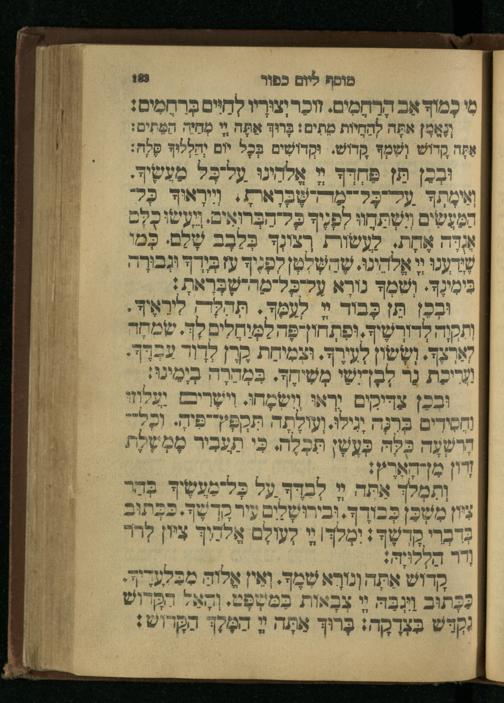 מוסף ליום כפור 183
מִי כָמוֹךָ אַב הָרַחֲמִים. זוֹכֵר יְצוּרָיו לְחַיִּים בְּרַחֲמִים:
וְנֶאֱמָן אַתָּה לְהַחֲיוֹת מֵתִים: בָּרוּךְ אַתָּה יְיָ מְחַיֵּה הַמֵּתִים:
אַתָּה קָדוֹשׁ וְשִׁמְךָ קָדוֹשׁ. וּקְדוֹשִׁים בְּכָל יוֹם יְהַלְלוּךָ סֶּלָה:
וּבְכֵן תֵּן פַּחְדְּךָ יְיָ אֱלֹהֵינוּ עַל־כָּל מַעֲשֶׂיךָ.
וְאֵימָתְךָ עַל־כָּל־מַה־שֶּׁבָּרָאתָ. וְיִירָאוּךָ כָּל־
הַמַּעֲשִׂים וְיִשְׁתַּחֲווּ לְפָנֶיךָ כָּל־הַבְּרוּאִים. וְיֵעָשׂוּ כֻלָּם
אֲגֻדָּה אֶחָת. לַעֲשׂוֹת רְצוֹנְךָ בְּלֵבָב שָׁלֵם. כְּמוֹ
שֶׁיָּדַעְנוּ יְיָ אֱלֹהֵינוּ. שֶׁהַשִּׁלְטָן לְפָנֶיךָ עֹז בְּיָדְךָ וּגְבוּרָה
בִּימִינֶךָ. וְשִׁמְךָ נוֹרָא עַל־כָּל־מַה־שֶּׁבָּרָאתָ:
וּבְכֵן תֵּן כָּבוֹד יְיָ לְעַמֶּךָ. תְּהִלָּה לִירֵאֶיךָ.
וְתִקְוָה לְדוֹרְשֶׁיךָ. וּפִתְחוֹן־פֶּה לַמְיַחֲלִים לָךְ. שִׂמְחָה
לְאַרְצֶךָ. וְשָׂשׂוֹן לְעִירֶךָ. וּצְמִיחַת קֶרֶן לְדָוִד עַבְדֶּךָ.
וַעֲרִיכַת נֵר לְבֶן־יִשַׁי מְשִׁיחֶךָ. בִּמְהֵרָה בְיָמֵינוּ:
וּבְכֵן צַדִּיקִים יִרְאוּ וְיִשְׂמָחוּ. וִישָׁרִים יַעֲלֹזוּ
וַחֲסִידִים בְּרִנָּה יָגִילוּ. וְעוֹלָתָה תִּקְפָּץ־פִּיהָ. וְכָל־
הָרִשְׁעָה כֻּלָּהּ כְּעָשָׁן תִּכְלֶה. כִּי תַעֲבִיר מֶמְשֶׁלֶת
זָדוֹן מִן־הָאָרֶץ:
וְתִמְלֹךְ אַתָּה יְיָ לְבַדְּךָ עַל כָּל־מַעֲשֶׂיךָ בְּהַר
צִיּוֹן מִשְׁכַּן כְּבוֹדֶךָ. וּבִירוּשָׁלַיִם עִיר קָדְשֶׁךָ. כַּכָּתוּב
בְּדִבְרֵי קָדְשֶׁךָ: יִמְלֹךְ יְיָ לְעוֹלָם אֱלֹהַיִךְ צִיּוֹן לְדֹר
וָדֹר הַלְלוּיָהּ:
קָדוֹשׁ אַתָּה וְנוֹרָא שְׁמֶךָ. וְאֵין אֱלוֹהַּ מִבַּלְעָדֶיךָ.
כַּכָּתוּב וַיִּגְבַּהּ יְיָ צְבָאוֹת בַּמִּשְׁפָּט. וְהָאֵל הַקָּדוֹשׁ
נִקְדַּשׁ בִּצְדָקָה: בָּרוּךְ אַתָּה יְיָ הַמֶּלֶךְ הַקָּדוֹשׁ: